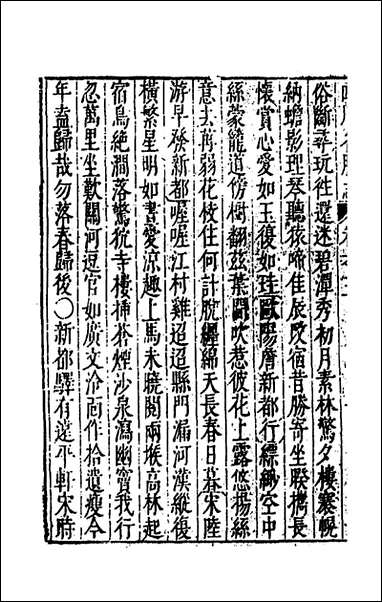 俗斷尋玩性還迷碧潭秀初月素林驚夕棲褰幌
納蟾影理琴聽猿啼佳辰改宿昔勝寄坐睽攜長
懷賞心愛如玉復如珪歐陽詹新都行縹緲空中
絲蒙籠道傍樹翻茲葉間吹惹彼花上露悠揚絲
意去苒弱花枝住何計脫纏綿天長春日暮宋陸
游早發新都喔喔江村雞迢迢縣門漏河漢縱復
橫繁星明如晝愛涼趣上馬未曉閱兩堠高林起
宿鳥絕澗落驚狖寺樓插蒼煙沙泉瀉幽竇我行
忽萬里坐歎關河逗官如廣文冷面作拾遺瘦今
年盍歸哉勿落春歸後〇新都驛有遠平軒宋時